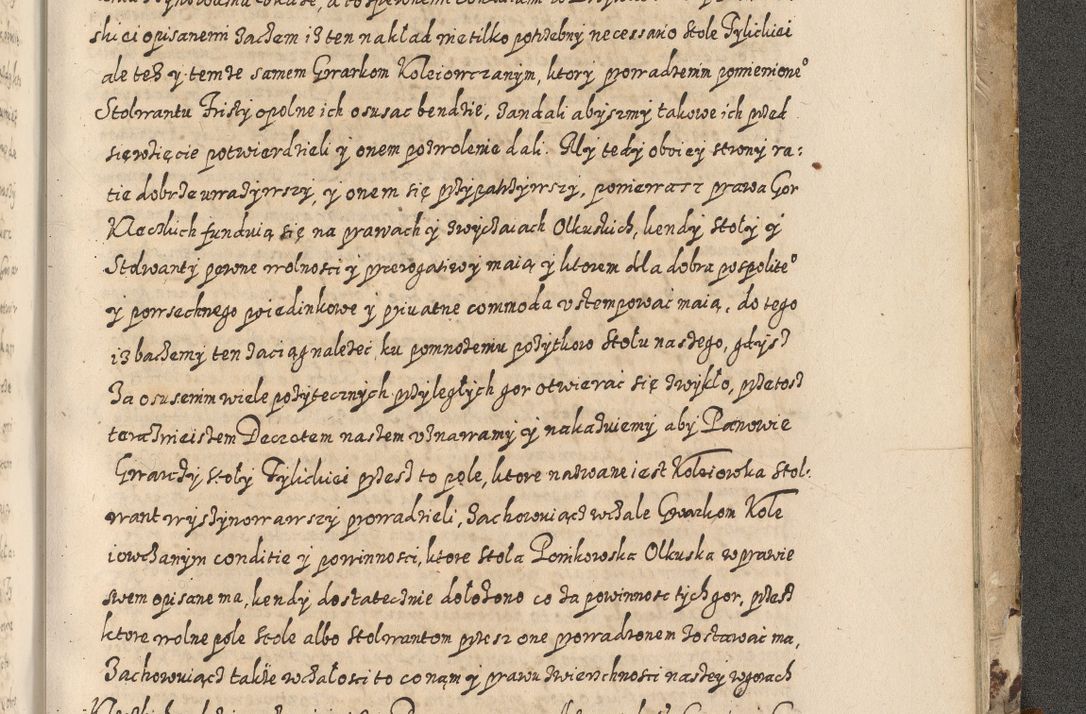 skiei opisanemi Zaczem iz ten nakład nie tilko potrzebny necessario stole Pylickiei
ale tesz y temze samem Gwarkom Koleiowczanym, ktory prowadzenim pomienione°
Stolwantu Fristy opolne ich osusac bendzie, Zandali abyszmy takowe ich przed
sięwzięcie potwierdzieli y onem pozwolenie dali. My tedy oboiey strony ra:
tie dobrze uwazywszy, y onem się przypatrzywszy, poniewasz prawa Gor
Kleckich funduią się na prawach y zwyczaiach Olkuskich, kendy Stoly y
Stolwanty pewne wolnosci y prerogatiwy maią y ktorem dla dobra pospolite°
y powsechnego poiedinkowe y priuatne commoda vstempowac maią, do tego
iz baczemy ten zaciąg nalezec ku pomnozeniu pozytkow Stołu naszego, gdysz
Za osusenim wiele pozytecznych przyległych gor otwierac się zwykło, przetosz
teraznieiszem Decretem naszem vznawamy y nakazuiemy aby Panowie
Gwarczy Stoły Pylickiei przesz to pole, ktore nazwane iest Koleiowska Stol:
want wysztynowawszy prowadzieli, Zachowuiącz wczale Gwarkom Kole
iowczanym conditie y powinnosci, ktore Stola Ponikowska Olkuska w prawie
swem opisane ma, kendy dostatecznie dołozono co za powinnosc tych gor, przesz
ktore wolne pole Stole albo Stolwantom przesz one prowadzonem zostawac ma,
Zachowuiącz takze wczałosci to co nam y prawu zwierchnosci naszey w gorach